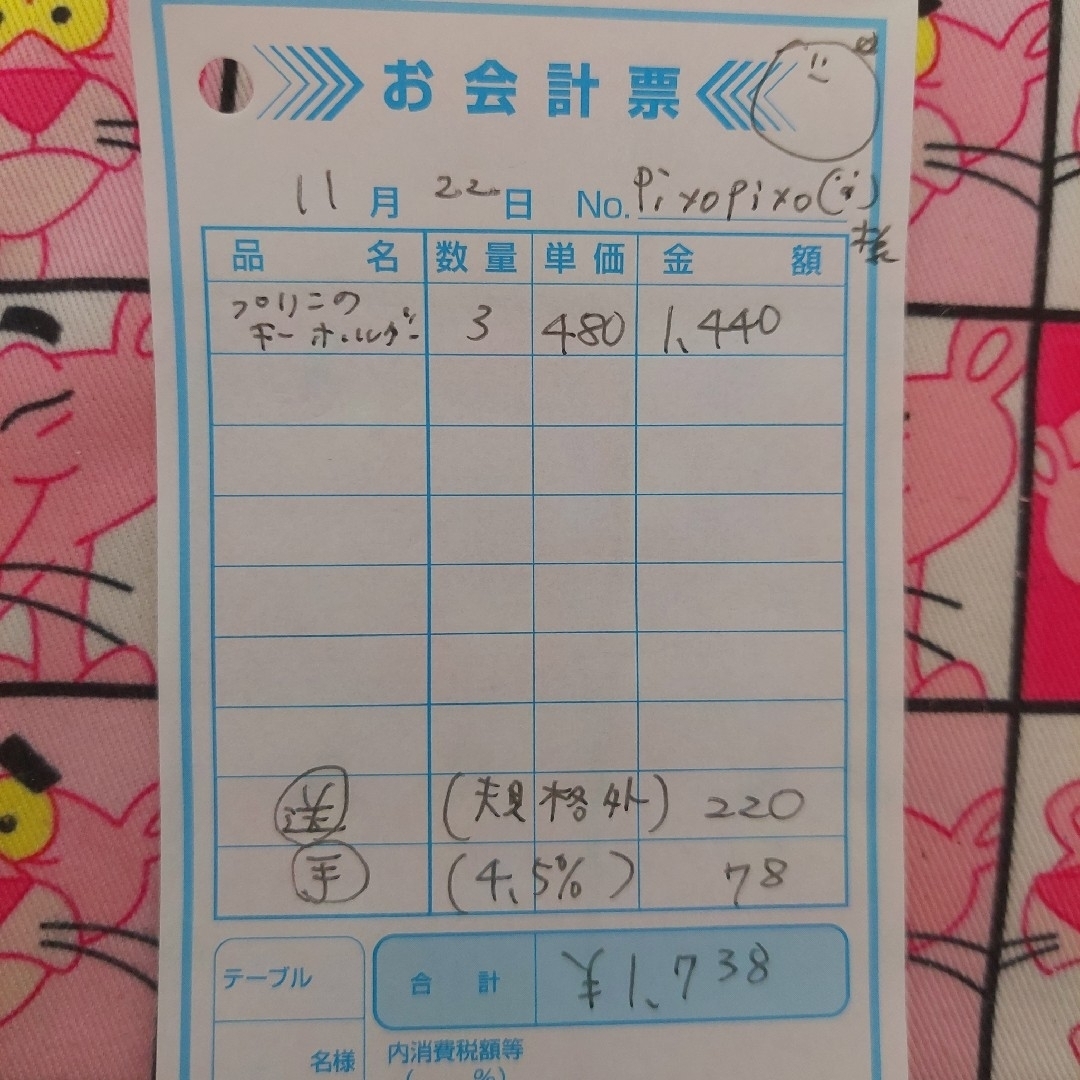 お会計票
11月22日 No. pixopixo(¨̮)様
品名 数量 単価 金額
プリンの
キーホルダー 3 480 1,440
送 (規格外) 220
手 (4.5%) 78
テーブル
合計 ¥1,738
名様
内消費税額等
( %)